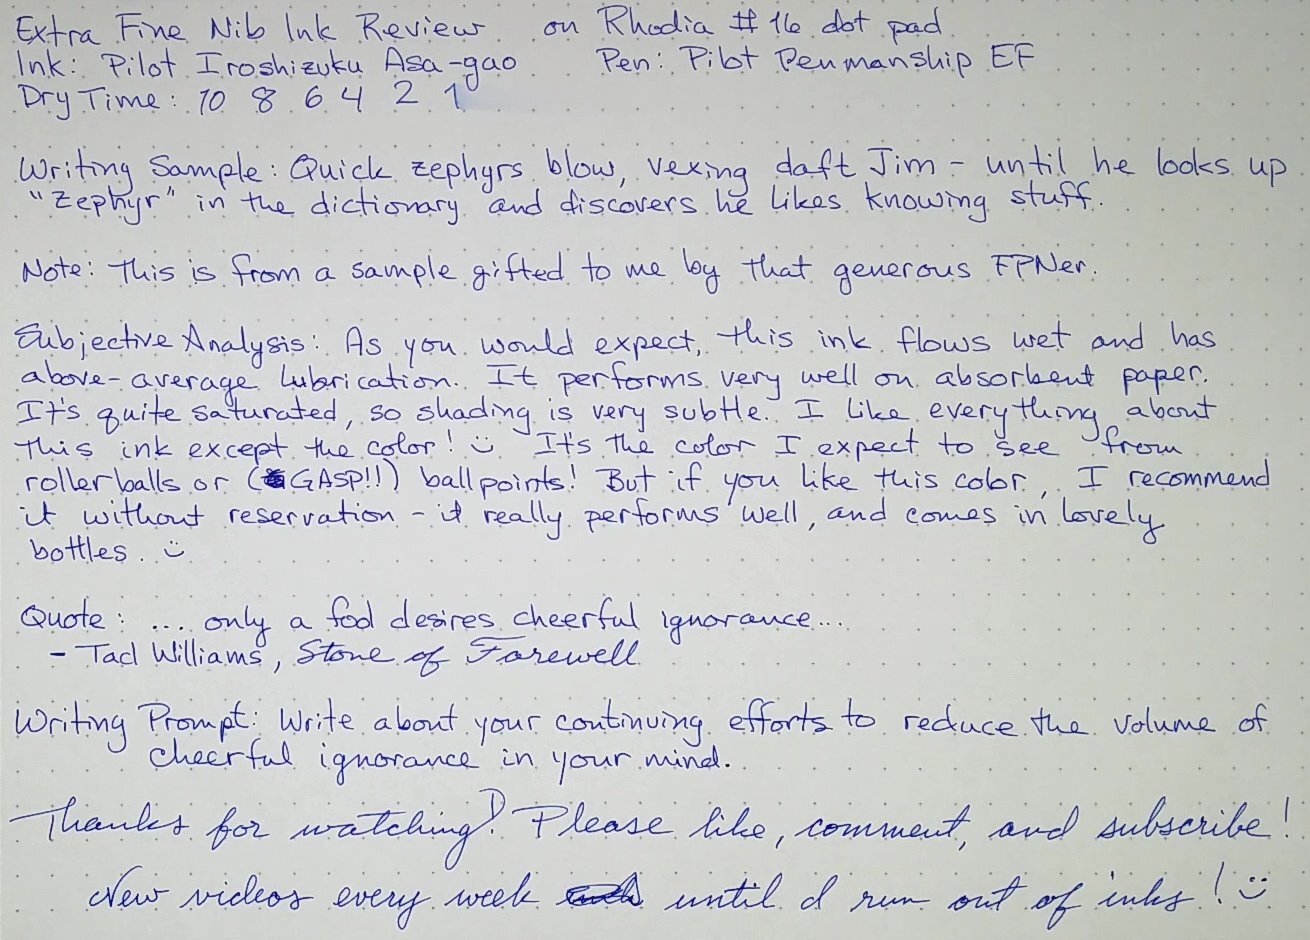 Extra Fine Nib Ink Review on Rhodia # 16 dot pad
Ink: Pilot Iroshizuku Asa-gao Pen: Pilot Penmanship EF
Dry Time: 10 8 6 4 2 1
Writing Sample: Quick zephyrs blow, vexing daft Jim - until he looks up
"Zephyr" in the dictionary and discovers he likes knowing stuff.
Note: This is from a sample gifted to me by that generous FPNer.
Subjective Analysis: As you would expect, this ink flows wet and has
above-average lubrication. It performs very well on absorbent paper.
It's quite saturated, so shading is very subtle. I like everything about
this ink except the color! :) It's the color I expect to see from
rollerballs or (GASP!!) ballpoints! But if you like this color, I recommend
it without reservation - it really performs well, and comes in lovely
bottles. :)
Quote: ... only a fool desires cheerful ignorance...
- Tad Williams, Stone of Farewell
Writing Prompt: Write about your continuing efforts to reduce the volume of
cheerful ignorance in your mind.
Thanks for watching! Please like, comment, and subscribe!
New videos every week until I run out of inks! :)